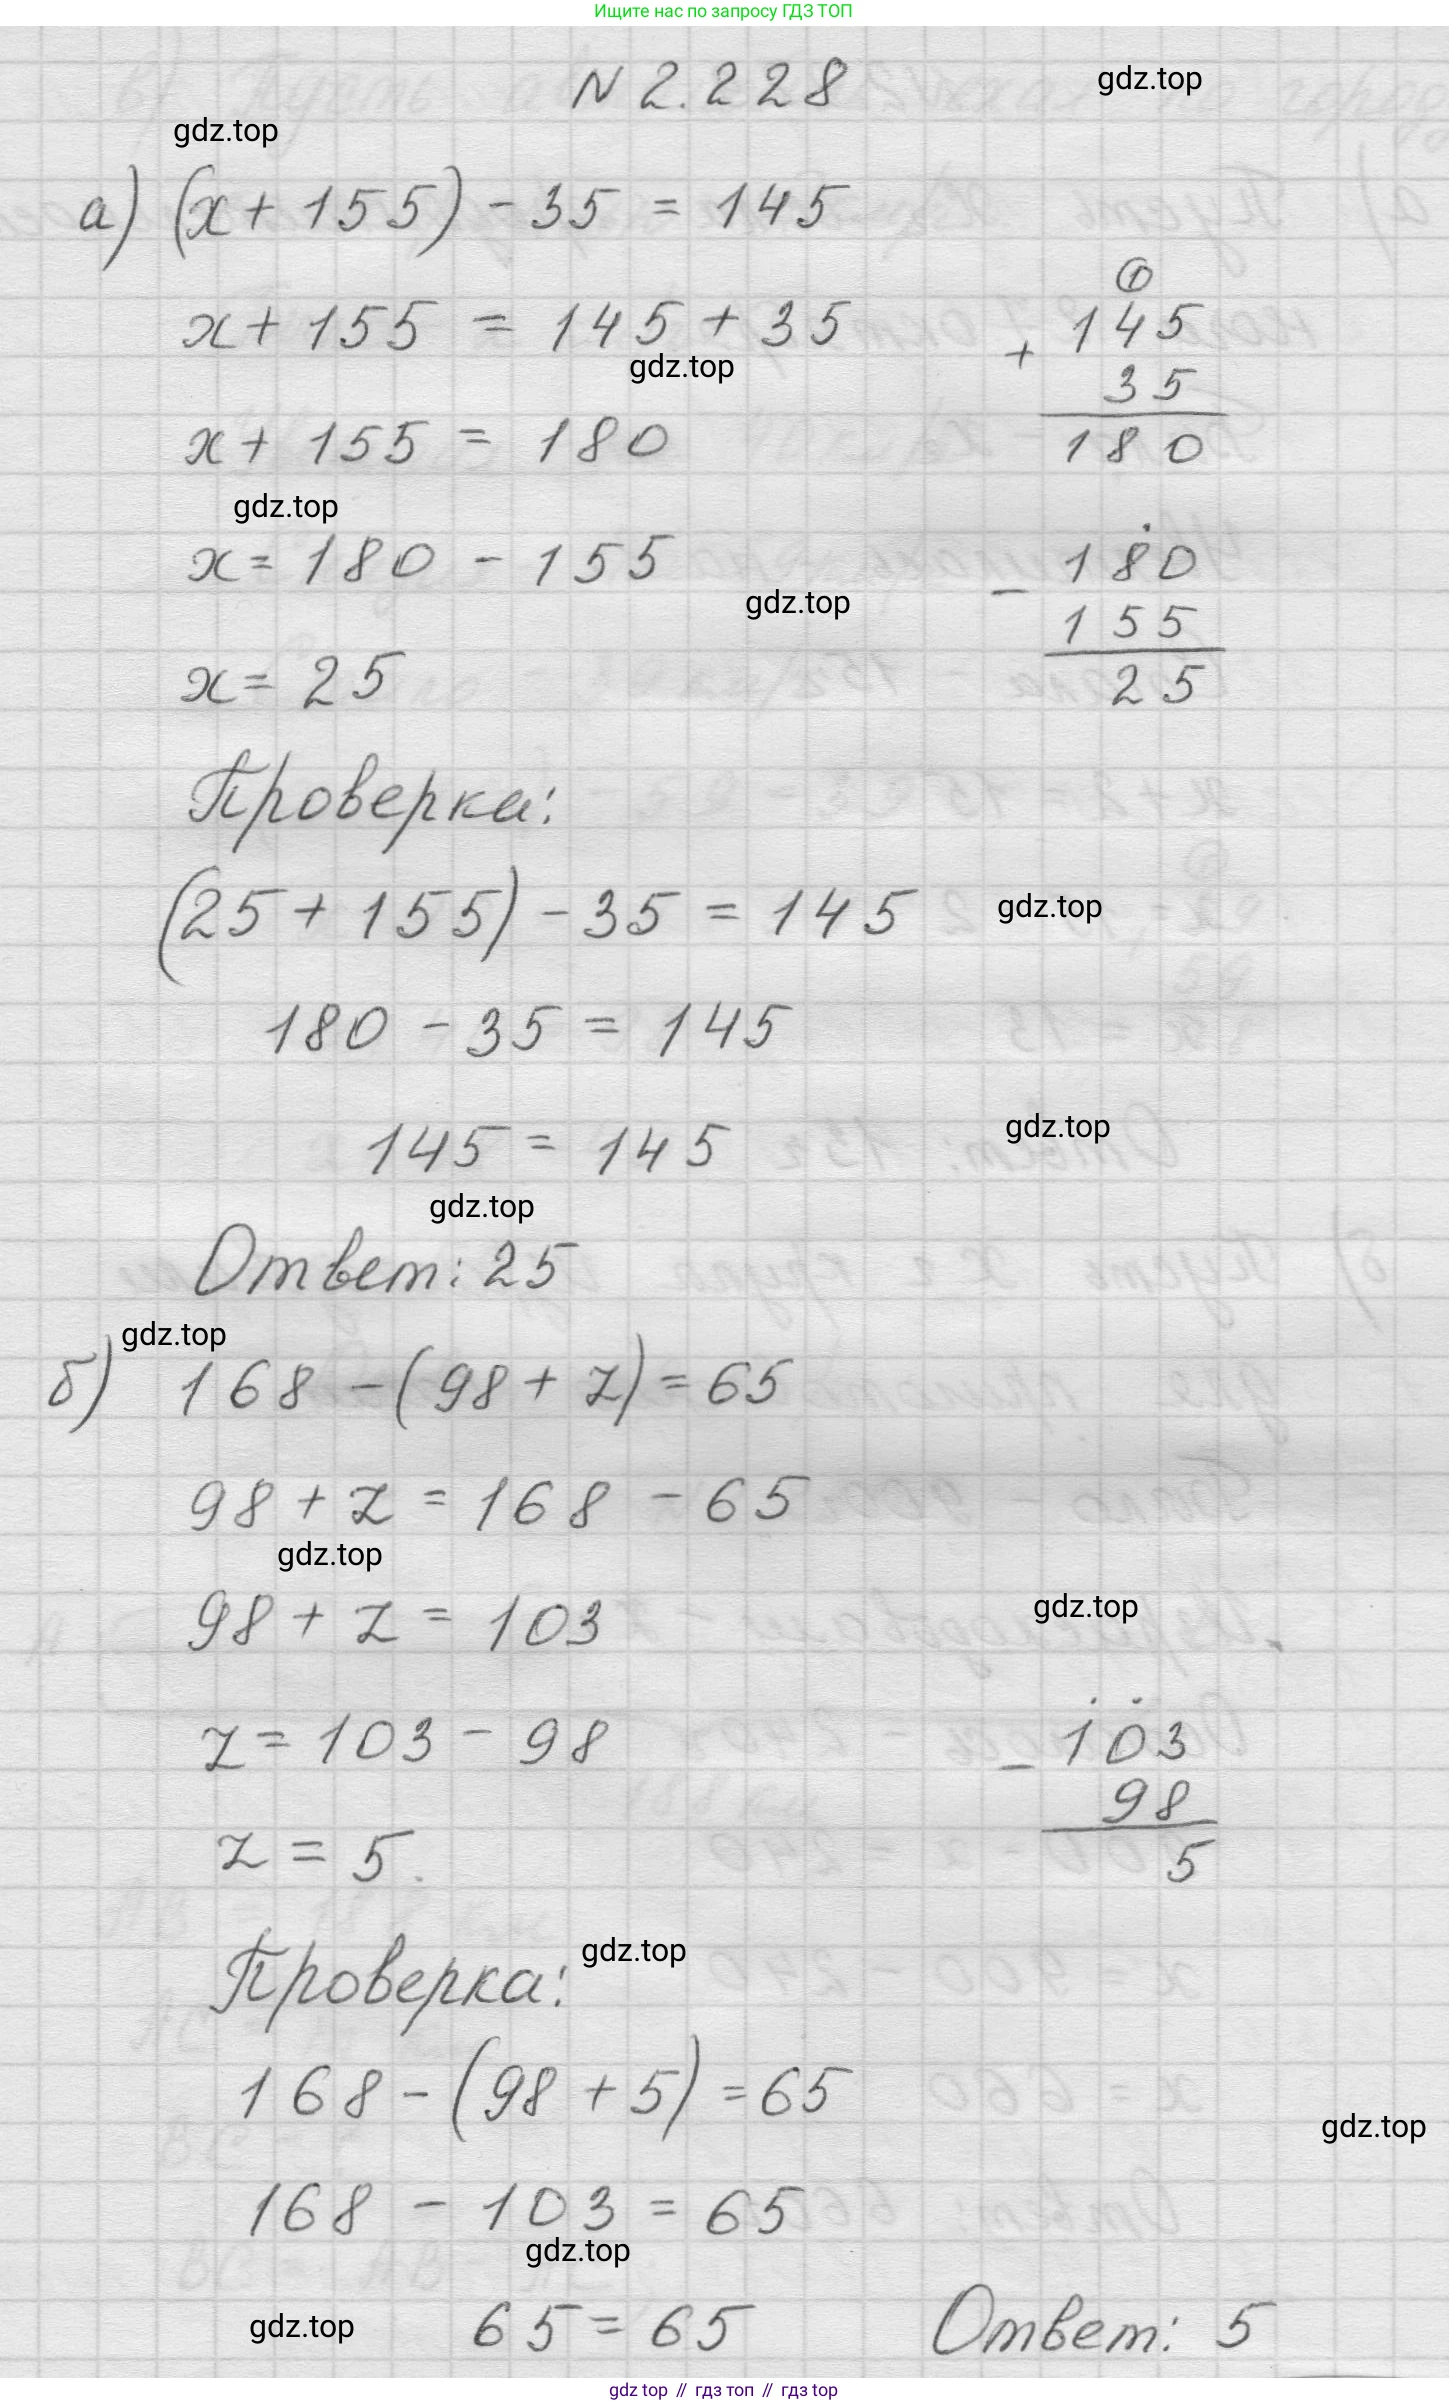 Ищите нас по запросу ГДЗ ТОП
N 2.228
gdz.top
gdz.top
а) (x + 155) - 35 = 145
x + 155 = 145 + 35
gdz.top
1
+ 145
35
180
x + 155 = 180
gdz.top
x = 180 - 155
gdz.top
- 180
155
25
x = 25
Проверка:
(25 + 155) - 35 = 145
gdz.top
180 - 35 = 145
145 = 145
gdz.top
gdz.top
Ответ: 25
gdz.top
б) 168 - (98 + z) = 65
98 + z = 168 - 65
gdz.top
98 + z = 103
gdz.top
z = 103 - 98
- 103
98
5
z = 5.
Проверка:
gdz.top
168 - (98 + 5) = 65
gdz.top
168 - 103 = 65
gdz.top
gdz.top
65 = 65
Ответ: 5
gdz top // гдз топ // гдз top